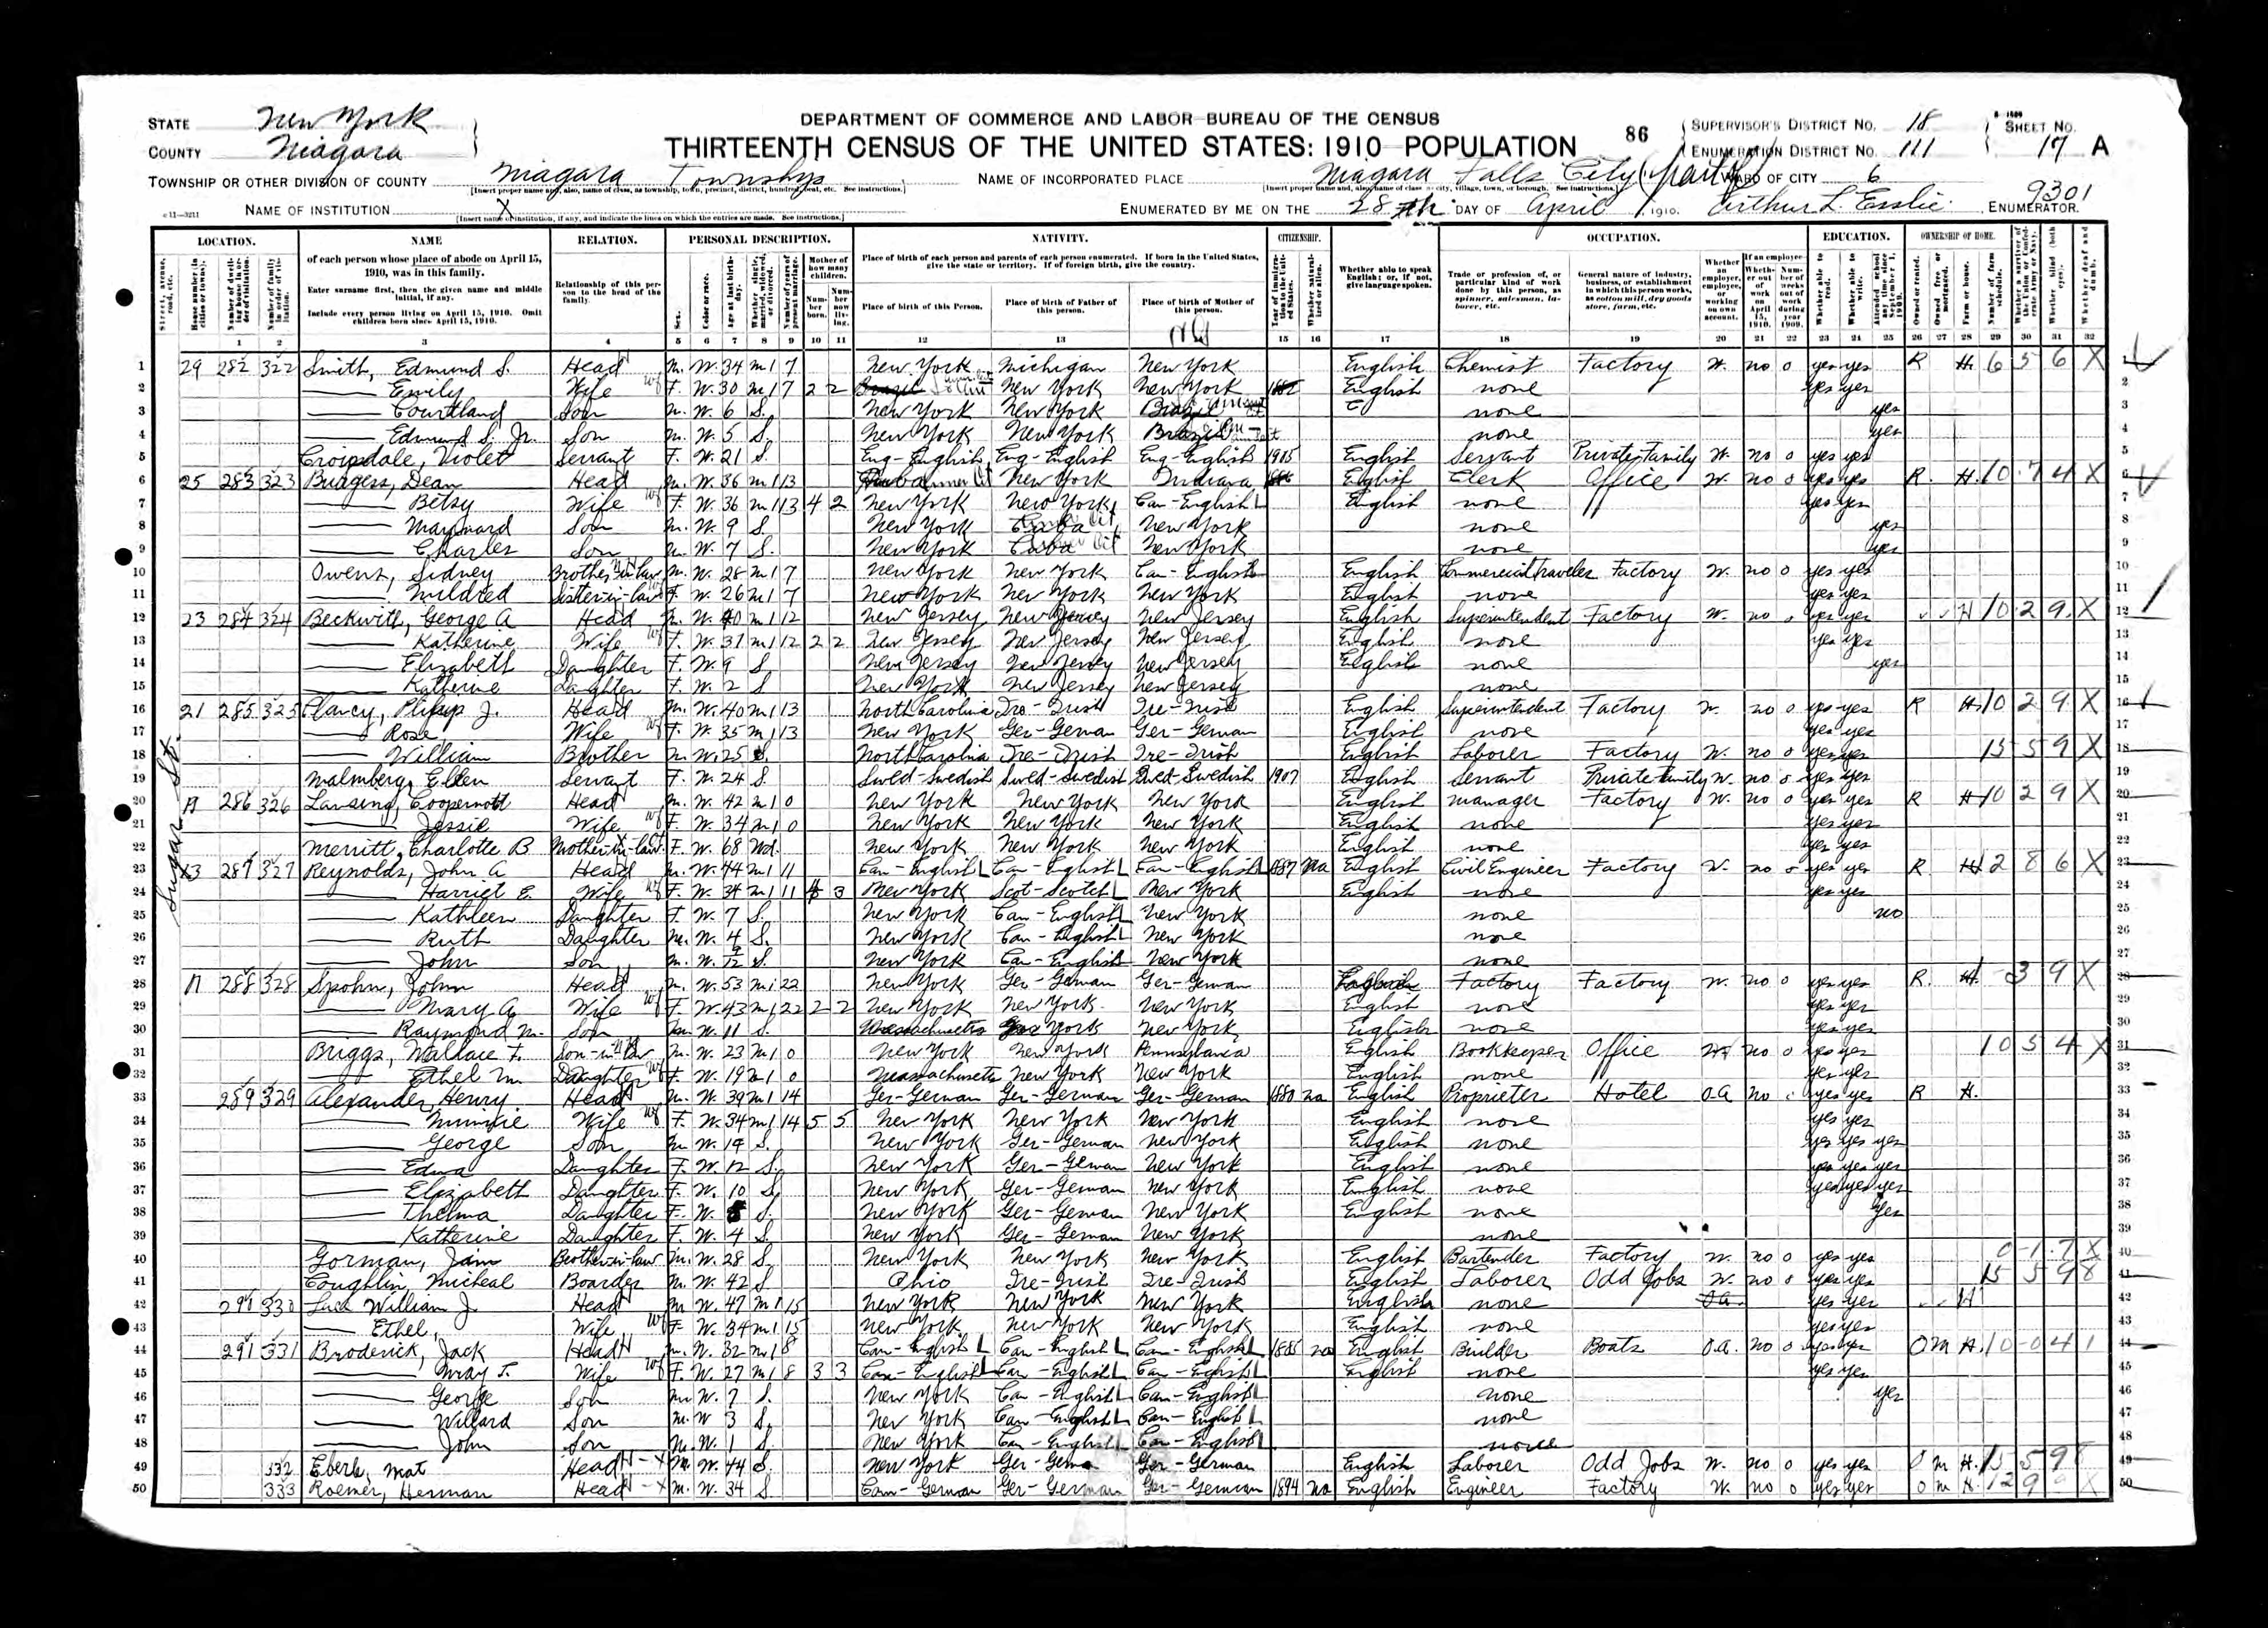 DEPARTMENT OF COMMERCE AND LABOR—BUREAU OF THE CENSUS
THIRTEENTH CENSUS OF THE UNITED STATES: 1910 POPULATION
86
STATE New York
COUNTY Niagara
SUPERVISOR'S DISTRICT NO. 18
ENUMERATION DISTRICT NO. 111
SHEET NO. 17 A
TOWNSHIP OR OTHER DIVISION OF COUNTY Niagara Township
NAME OF INCORPORATED PLACE Niagara Falls City (part)
WARD OF CITY 6
NAME OF INSTITUTION X
ENUMERATED BY ME ON THE 28th DAY OF April, 1910. Arthur L. Esslie, ENUMERATOR.
9301
LOCATION. NAME RELATION. PERSONAL DESCRIPTION. NATIVITY. CITIZENSHIP. OCCUPATION. EDUCATION. OWNERSHIP OF HOME.
of each person whose place of abode on April 15, 1910, was in this family.
Enter surname first, then the given name and middle initial, if any.
Include every person living on April 15, 1910. Omit children born since April 15, 1910.
Relationship of this person to the head of the family.
Place of birth of each person and parents of each person enumerated. If born in the United States, give the state or territory. If of foreign birth, give the country.
Place of birth of this Person. Place of birth of Father of this person. Place of birth of Mother of this person.
Whether able to speak English; or, if not, give language spoken.
Trade or profession of, or particular kind of work done by this person, as spinner, salesman, laborer, etc.
General nature of industry, business, or establishment in which this person works, as cotton mill, dry goods store, farm, etc.
1 2 3 4 5 6 7 8 9 10 11 12 13 14 15 16 17 18 19 20 21 22 23 24 25 26 27 28 29 30 31 32
Sugar St.
1 29 282 322 Smith, Edmund S. Head M. W. 34 M1 7 New York Michigan New York English Chemist Factory W. no 0 yes yes R H. 6 5 6 X
2 Emily Wife F. W. 30 M1 7 2 2 Brazil New York New York English none yes yes
3 Courtland Son M. W. 6 S. New York New York Brazil none yes
4 Edmund S. Jr. Son M. W. 5 S. New York New York Brazil none yes
5 Croipdale, Violet Servant F. W. 21 S. Eng-English Eng-English Eng-English 1905 English Servant Private Family W. no 0 yes yes
6 25 283 323 Burgess, Dean Head M. W. 36 M1 13 Cuba New York Indiana English Clerk Office W. no 0 yes yes R. H. 10 7 4 X
7 Betsy Wife F. W. 36 M1 13 4 2 New York New York Can-English English none yes yes
8 Maynard Son M. W. 9 S. New York Cuba New York none yes
9 Charles Son M. W. 7 S. New York Cuba New York none yes
10 Owens, Sidney Brother-in-law M. W. 28 M1 7 New York New York Can-English English Commercial Traveler Factory W. no 0 yes yes
11 Mildred Sister-in-law F. W. 26 M1 7 New York New York New York English none yes yes
12 23 284 324 Beckwith, George A Head M. W. 40 M1 12 New Jersey New Jersey New Jersey English Superintendent Factory W. no 0 yes yes H 10 2 9 X
13 Katherine Wife F. W. 31 M1 12 2 2 New Jersey New Jersey New Jersey English none yes yes
14 Elizabeth Daughter F. W. 9 S New Jersey New Jersey New Jersey English none yes
15 Katherine Daughter F. W. 2 S New York New Jersey New Jersey none
16 21 285 325 Clancy, Philip J. Head M. W. 40 M1 13 North Carolina Ire-Irish Ire-Irish English Superintendent Factory W. no 0 yes yes R H. 10 2 9 X
17 Rose Wife F. W. 35 M1 13 New York Ger-German Ger-German English none yes yes
18 William Brother M. W. 25 S. North Carolina Ire-Irish Ire-Irish English Laborer Factory W. no 0 yes yes 15 5 9 X
19 Malmberg, Ellen Servant F. W. 24 S. Swed-Swedish Swed-Swedish Swed-Swedish 1907 English Servant Private Family W. no 0 yes yes
20 17 286 326 Lansing, Coopernott Head M. W. 42 M1 0 New York New York New York English Manager Factory W. no 0 yes yes R H 10 2 9 X
21 Jessie Wife F. W. 34 M1 0 New York New York New York English none yes yes
22 Merritt, Charlotte B Mother-in-law F. W. 68 Wd. New York New York New York English none yes yes
23 13 287 327 Reynolds, John A Head M. W. 44 M1 11 Can-English Can-English Can-English 1887 Na English Civil Engineer Factory W. no 0 yes yes R H 2 8 6 X
24 Harriet E. Wife F. W. 34 M1 11 3 New York Scot-Scotch New York English none yes yes
25 Kathleen Daughter F. W. 7 S. New York Can-English New York none no
26 Ruth Daughter M. W. 4 S. New York Can-English New York none
27 John Son M. W. 9/12 S. New York Can-English New York none
28 11 288 328 Spohn, John Head M. W. 53 M1 22 New York Ger-German Ger-German English Factory Factory W. no 0 yes yes R. H. 3 9 X
29 Mary A. Wife F. W. 43 M1 22 2 2 New York New York New York English none yes yes
30 Raymond M. Son M. W. 11 S. Massachusetts New York New York English none yes yes
31 Briggs, Wallace F. Son-in-law M. W. 23 M1 0 New York New York Pennsylvania English Bookkeeper Office W no 0 yes yes 10 5 4 X
32 Ethel M. Daughter F. W. 19 M1 0 Massachusetts New York New York English none yes yes
33 289 329 Alexander, Henry Head M. W. 39 M1 14 Ger-German Ger-German Ger-German 1880 na English Proprieter Hotel O.A no 0 yes yes R H.
34 Minnie Wife F. W. 34 M1 14 5 5 New York New York New York English none yes yes
35 George Son M. W. 14 S. New York Ger-German New York English none yes yes yes
36 Edna Daughter F. W. 12 S. New York Ger-German New York English none yes yes yes
37 Elizabeth Daughter F. W. 10 S. New York Ger-German New York English none yes yes yes
38 Thelma Daughter F. W. 8 S. New York Ger-German New York English none yes
39 Katherine Daughter F. W. 4 S. New York Ger-German New York none
40 Gorman, Jim Brother-in-law M. W. 28 S. New York New York New York English Bartender Factory W. no 0 yes yes 0-1 7 X
41 Coughlin, Micheal Boarder M. W. 42 S Ohio Ire-Irish Ire-Irish English Laborer Odd Jobs W. no 0 yes yes 15 5 9 8
42 290 330 William J. Head M W. 47 M1 15 New York New York New York English none O.A. yes yes H
43 Ethel, Wife F. W. 34 M1 15 New York New York New York English none yes yes
44 291 331 Broderick, Jack Head M. W. 32 M1 8 Can-English Can-English Can-English 1885 na English Builder Boats O.A. no 0 yes yes O M H. 10-0 4 1
45 May T. Wife F. W. 27 M1 8 3 3 Can-English Can-English Can-English English none yes yes
46 George Son M. W. 7 S. New York Can-English Can-English none yes
47 Willard Son M. W 3 S. New York Can-English Can-English none
48 John Son M. W. 1 S. New York Can-English Can-English none
49 332 Eberle, Mat Head M. W. 44 S. New York Ger-Germa Ger-German English Laborer Odd Jobs W. no 0 yes yes O M H. 15 5 9 8
50 333 Roemer, Herman Head M. W. 34 S Can-German Ger-German Ger-German 1894 na English Engineer Factory W. no 0 yes yes O M H. 12 9 X